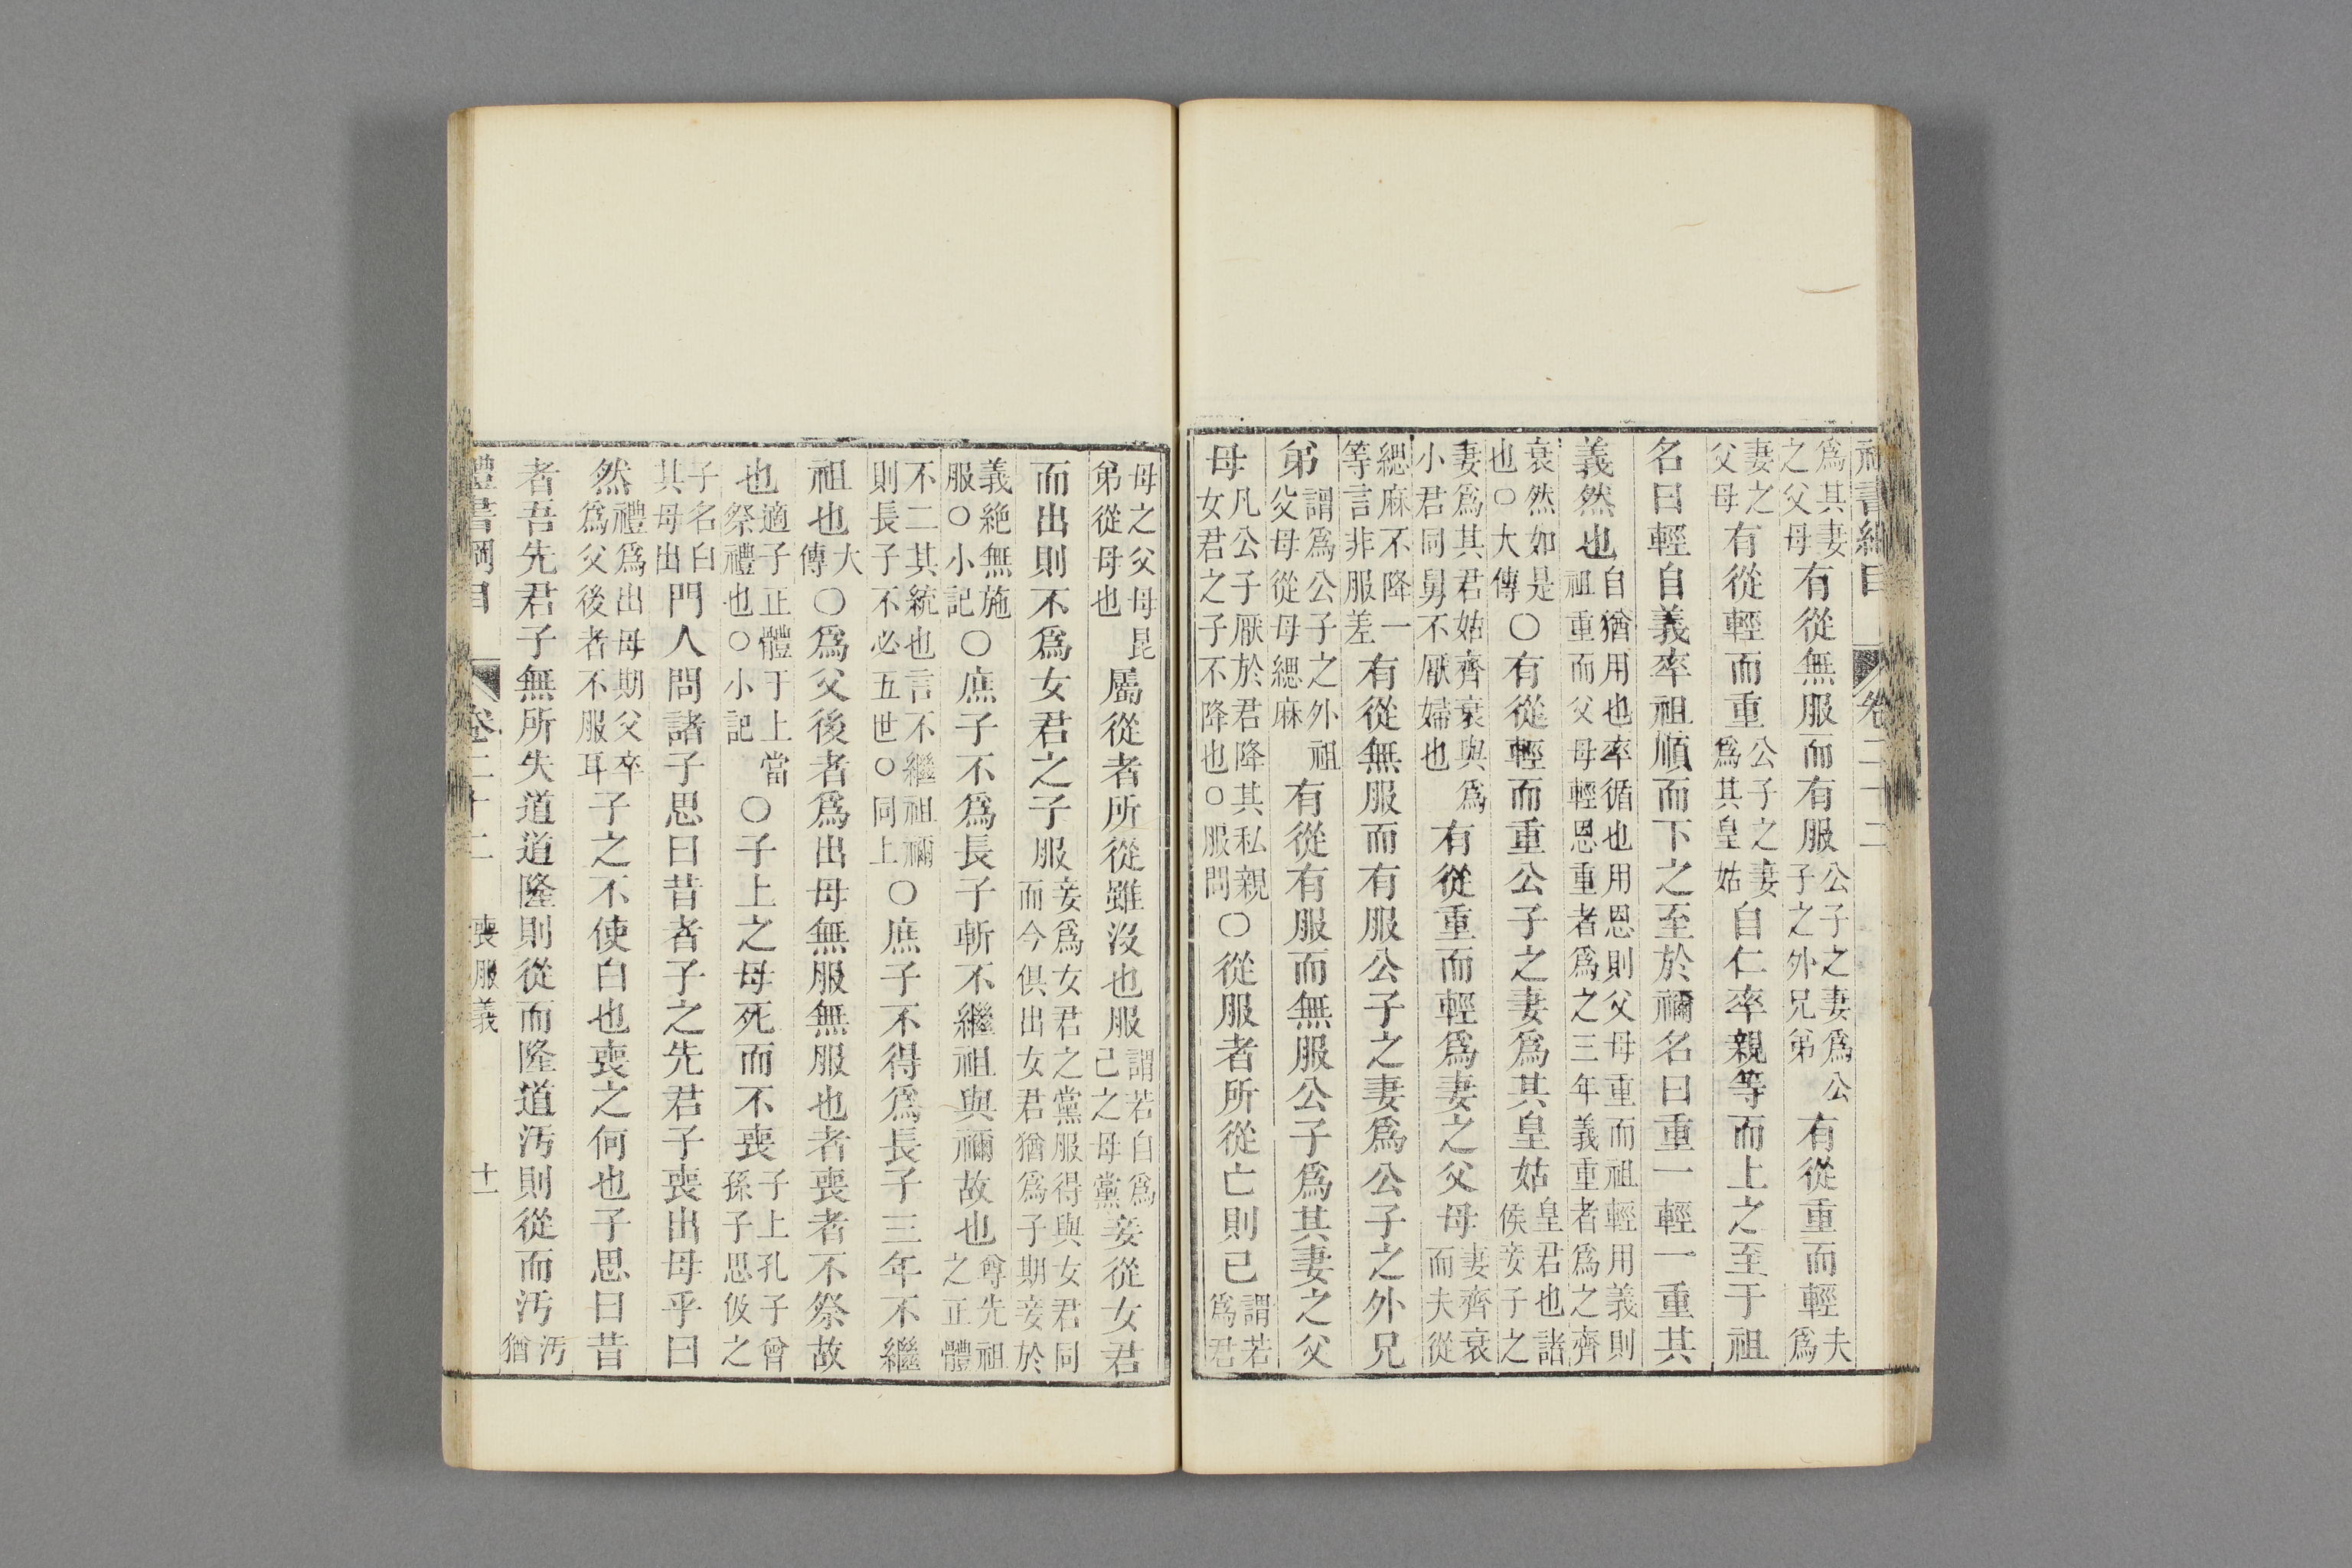 禮書綱目 卷二十二
爲其妻之父母有從無服而有服公子之妻爲公子之外兄弟有從重而輕夫爲
妻之父母有從輕而重公子之妻爲其皇姑自仁率親等而上之至于祖
名曰輕自義率祖順而下之至於禰名曰重一輕一重其
義然也自猶用也率循也用恩則父母重而祖輕用義則祖重而父母輕恩重者爲之三年義重者爲之齊
衰然如是也○大傳○有從輕而重公子之妻爲其皇姑皇君也諸侯妾子之
妻爲其君姑齊衰與爲小君同舅不厭婦也有從重而輕爲妻之父母妻齊衰而夫從
緦麻不降一等言非服差有從無服而有服公子之妻爲公子之外兄
弟謂爲公子之外祖父母從母緦麻有從有服而無服公子爲其妻之父
母凡公子厭於君降其私親女君之子不降也○服問○從服者所從亡則已謂若爲君
母之父母昆弟從母也屬從者所從雖沒也服謂若自爲己之母黨妾從女君
而出則不爲女君之子服妾爲女君之黨服得與女君同而今俱出女君猶爲子期妾於
義絶無施服○小記○庶子不爲長子斬不繼祖與禰故也尊先祖之正體
不二其統也言不繼祖禰則長子不必五世○同上○庶子不得爲長子三年不繼
祖也大傳○爲父後者爲出母無服無服也者喪者不祭故
也適子正體于上當祭禮也○小記○子上之母死而不喪子上孔子曾孫子思伋之
子名白其母出門人問諸子思曰昔者子之先君子喪出母乎曰
然禮爲出母期父卒爲父後者不服耳子之不使白也喪之何也子思曰昔
者吾先君子無所失道道隆則從而隆道汚則從而汚汚猶
禮書綱目 卷二十二 喪服義 十一